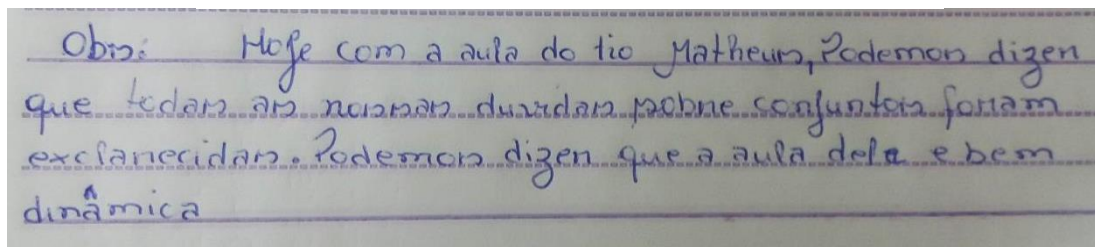 Obs: Hoje com a aula do tio Matheus, Podemos dizer
que todas as nossas duvidas sobre conjuntos foram
exclarecidas. Podemos dizer que a aula dele e bem
dinâmica